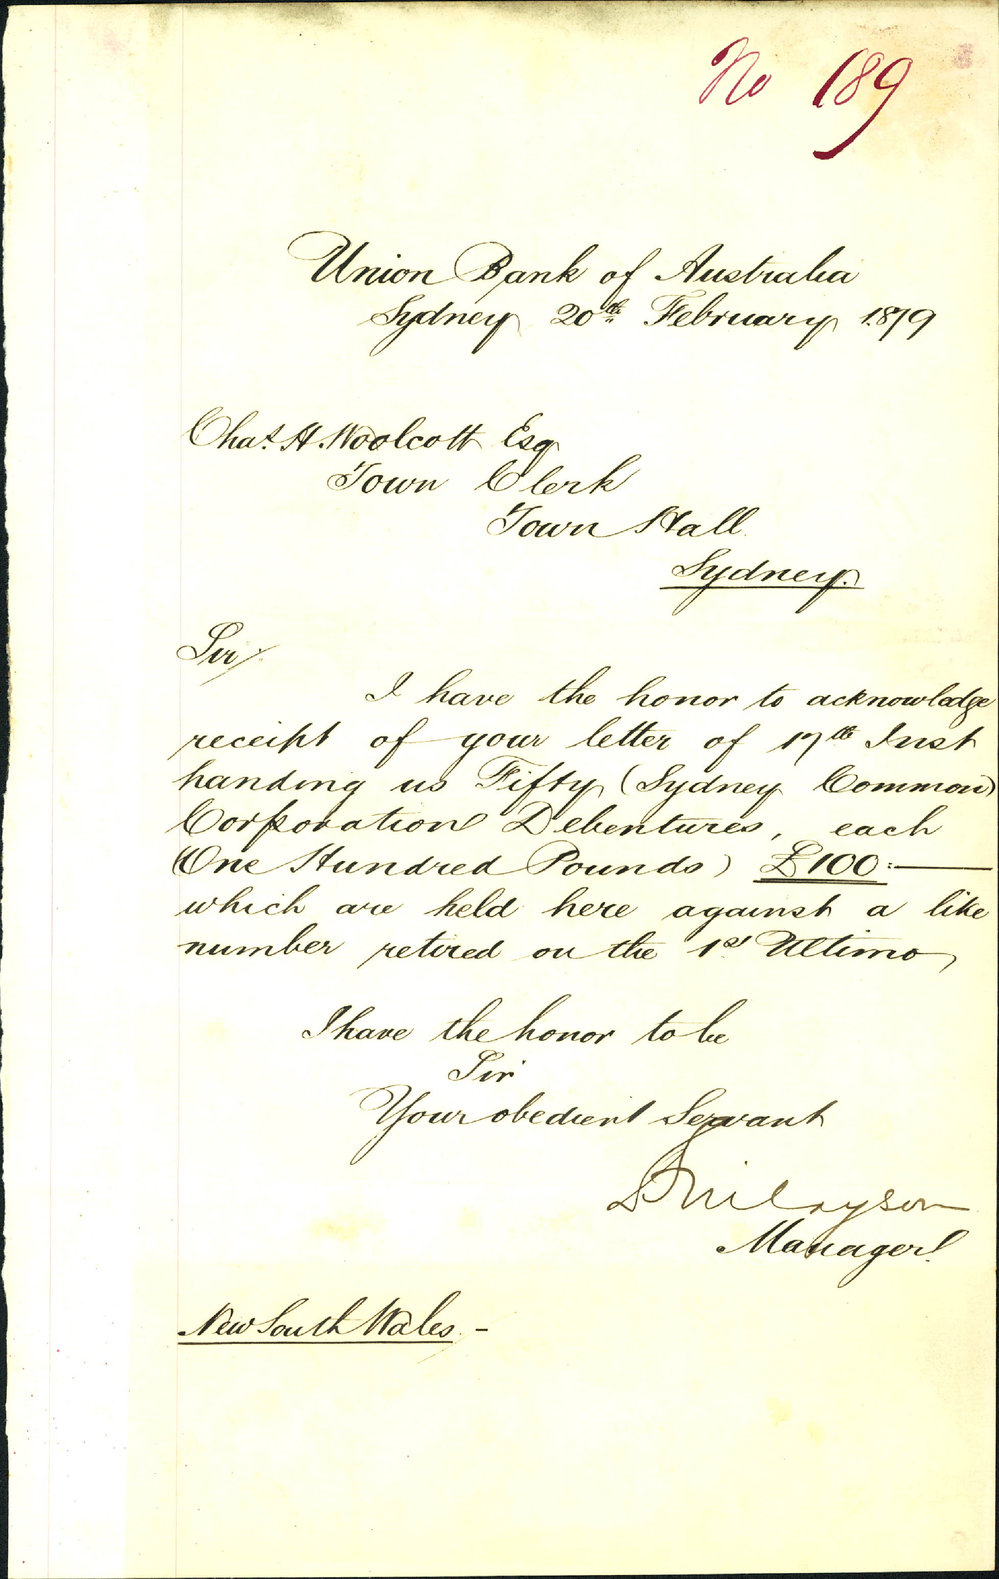 No 189
Union Bank of Australia
Sydney 20th February 1879
Chas. H. Woolcott Esq
Town Clerk
Town Hall.
Sydney.
Sir/
I have the honor to acknowledge
receipt of your letter of 17th Inst
handing us Fifty (Sydney Common)
Corporation Debentures, each
(One Hundred Pounds) £100:—
which are held here against a like
number retired on the 1st Ultimo,
I have the honor to be
Sir
Your obedient Servant
Manager.
New South Wales. -